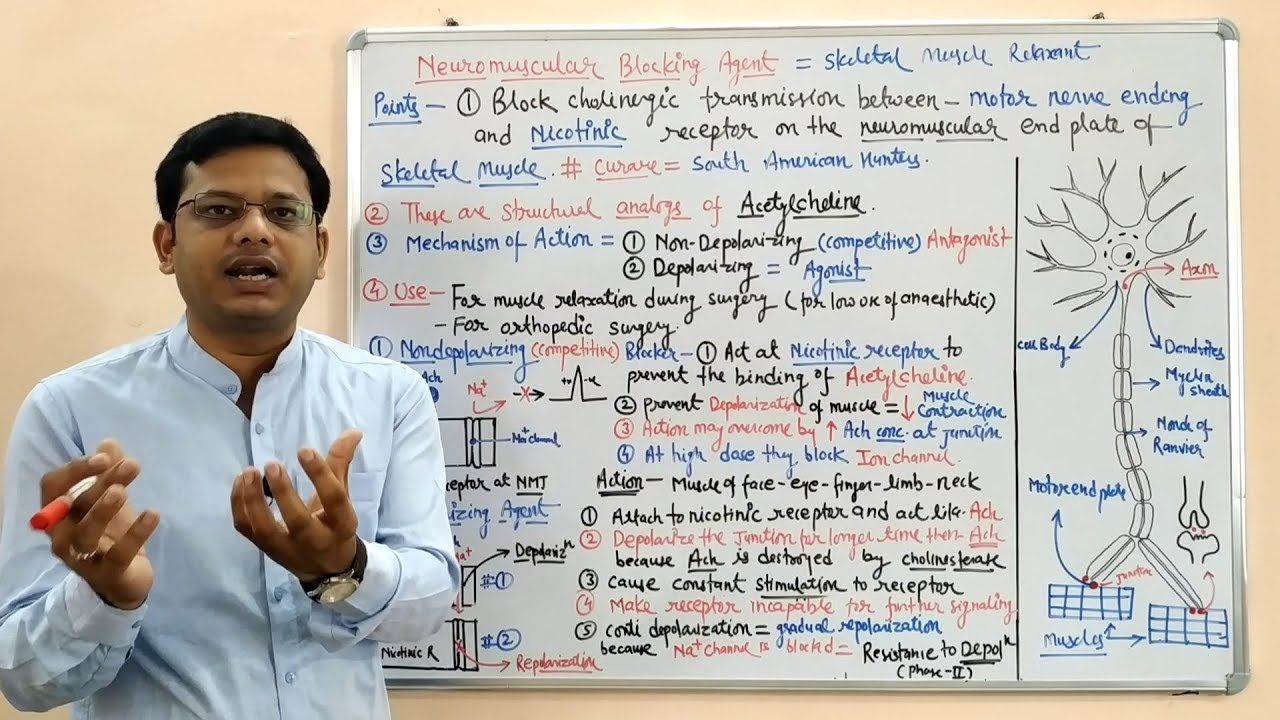 Neuromuscular Blocking Agent = Skeletal Muscle Relaxant
Points - ① Block cholinergic transmission between - motor nerve ending
and Nicotinic receptor on the neuromuscular end plate of
Skeletal Muscle. # Curare = South American Hunters.
② These are structural analogs of Acetylcheline.
③ Mechanism of Action = ① Non-Depolarizing (competitive) Antagonist
② Depolarizing = Agonist
④ Use - For muscle relaxation during surgery (for low of anaesthetic)
- For orthopedic surgery.
① Nondepolarizing (competitive) Blocker - ① Act at Nicotinic receptor to
prevent the binding of Acetylcheline.
② prevent Depolarization of muscle = ↓ Muscle Contraction
③ Action may overcome by ↑ Ach conc. at junction
④ At high dose they block Ion channel.
Ach
Na+
Na+ channel
ceptor at NMT
Action - Muscle of face-eye-finger-limb-neck
izing Agent
① Attach to nicotinic receptor and act like Ach
② Depolarize the Junction for longer time then Ach
because Ach is destroyed by cholinesterase
③ cause constant Stimulation to receptor
④ Make receptor incapable for further signaling
⑤ conti depolarization = gradual repolarization
because Na+ channel is blocked = Resistance to Depoln
(Phase-II)
Depolarizn
#①
#②
Nicotinic R
Repolarization
Axon
cell Body
Dendrites
Myelin sheath
Nonde of Ranvier
Motor end plate
Junction
Muscles